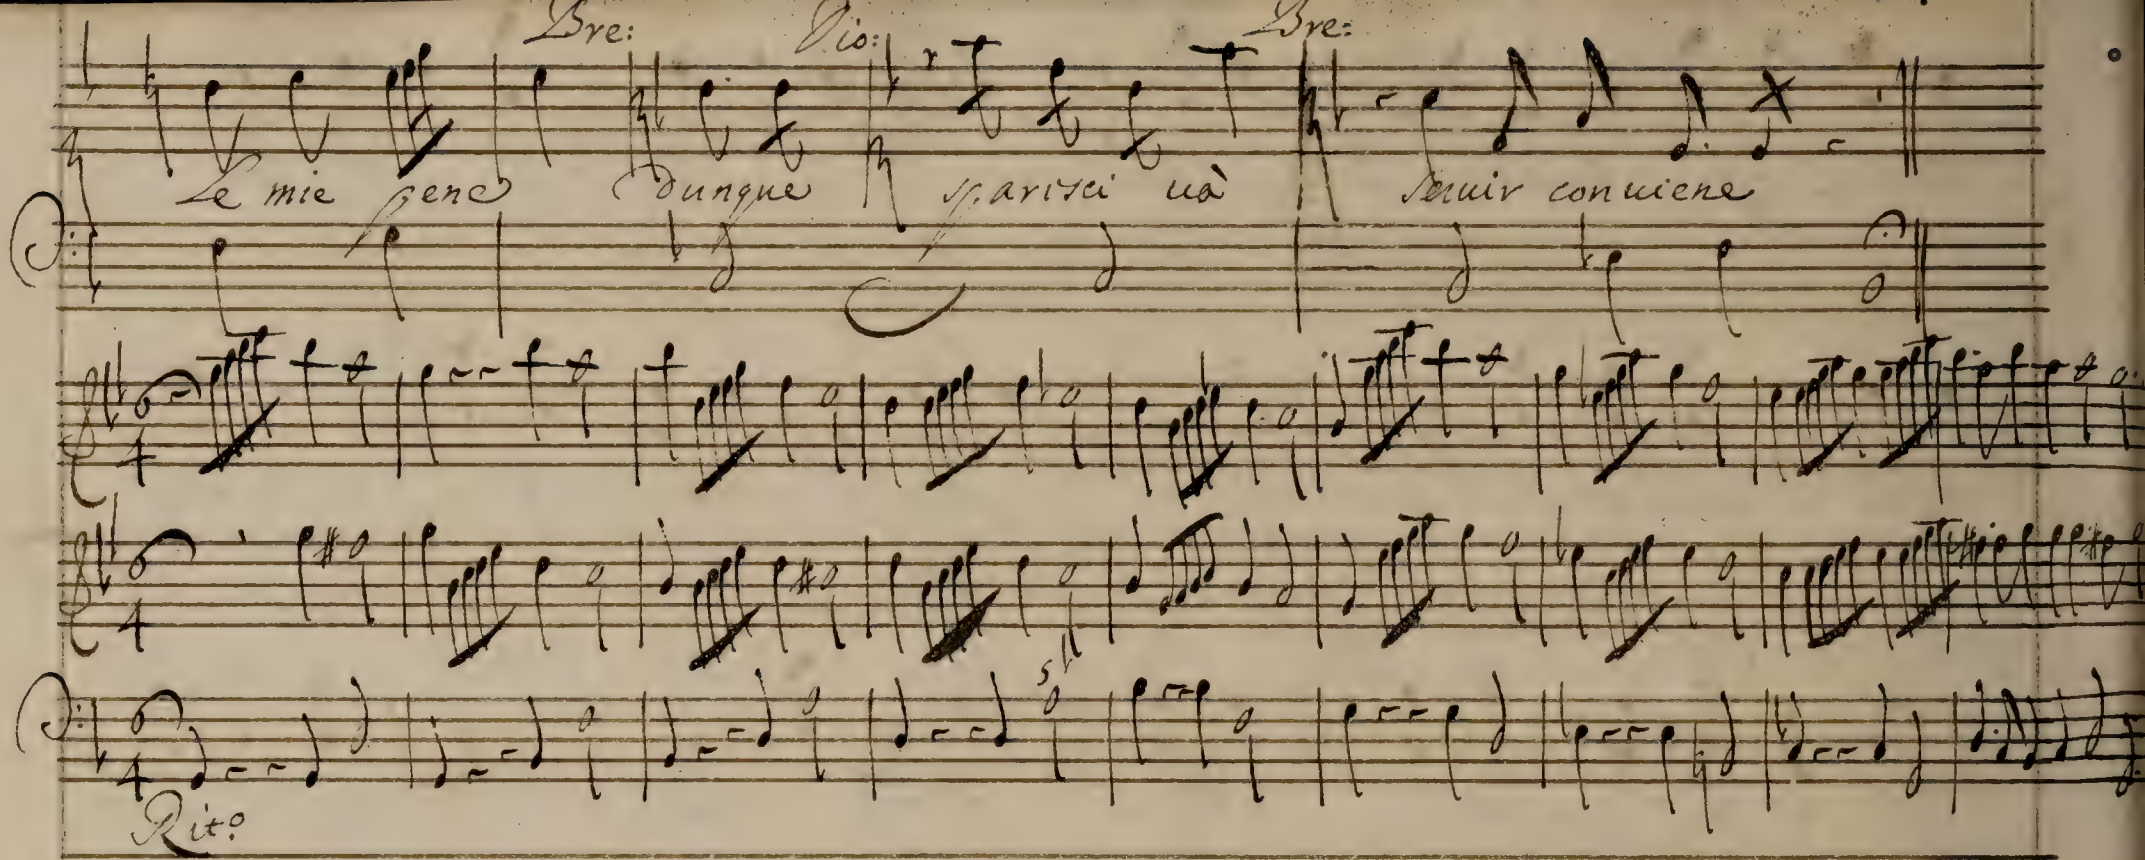 Bre: Dio: Bre:
Le mie pene Dunque sparisci uà seruir conuiene
6 4
6 4
6 4
Rit.o